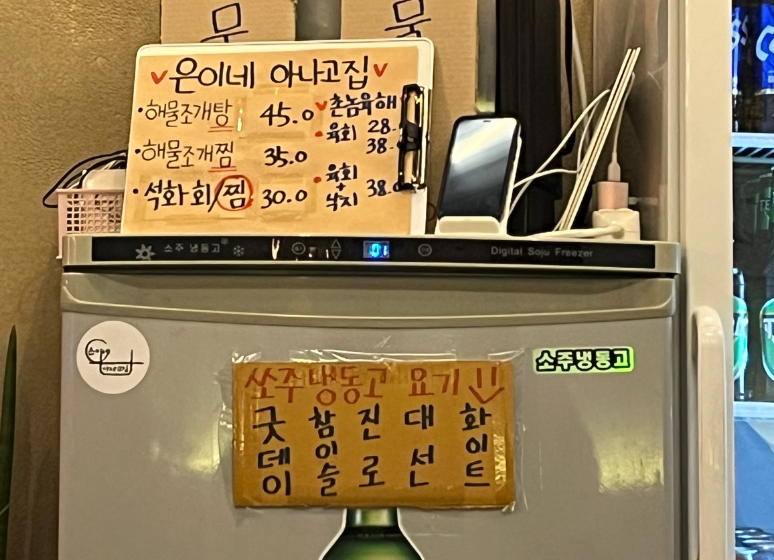 무
물
은이네 아나고집
·해물조개탕 45.0
·해물조개찜 35.0
·석화회/찜 30.0
촌놈육해
·육회 28.-
38.-
·육회
+
낙지 38.-
소주 냉동고
Digital Soju Freezer
소주냉동고
쏘주냉동고 요기↓↓
굿데이
참이슬
진로
대선
화이트